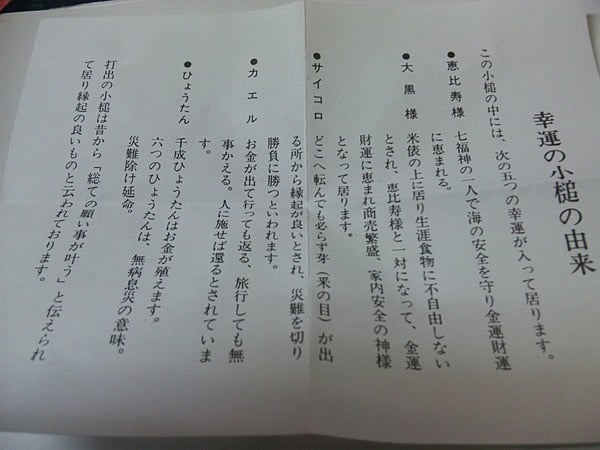 幸運の小槌の由来
この小槌の中には、次の五つの幸運が入って居ります。
●恵比寿様 七福神の一人で海の安全を守り金運財運
に恵まれる。
●大黒様 米俵の上に居り生涯食物に不自由しない
とされ、恵比寿様と一対になって、金運
財運に恵まれ商売繁盛、家内安全の神様
となって居ります。
●サイコロ どこへ転んでも必らず芽(采の目)が出
る所から縁起が良いとされ、災難を切り
勝負に勝つといわれます。
●カエル お金が出て行っても返る、旅行しても無
事かえる。人に施せば還るとされていま
す。
●ひょうたん 千成ひょうたんはお金が殖えます。
六つのひょうたんは、無病息災の意味。
災難除け延命。
打出の小槌は昔から「総ての願い事が叶う」と伝えられ
て居り縁起の良いものと云われております。